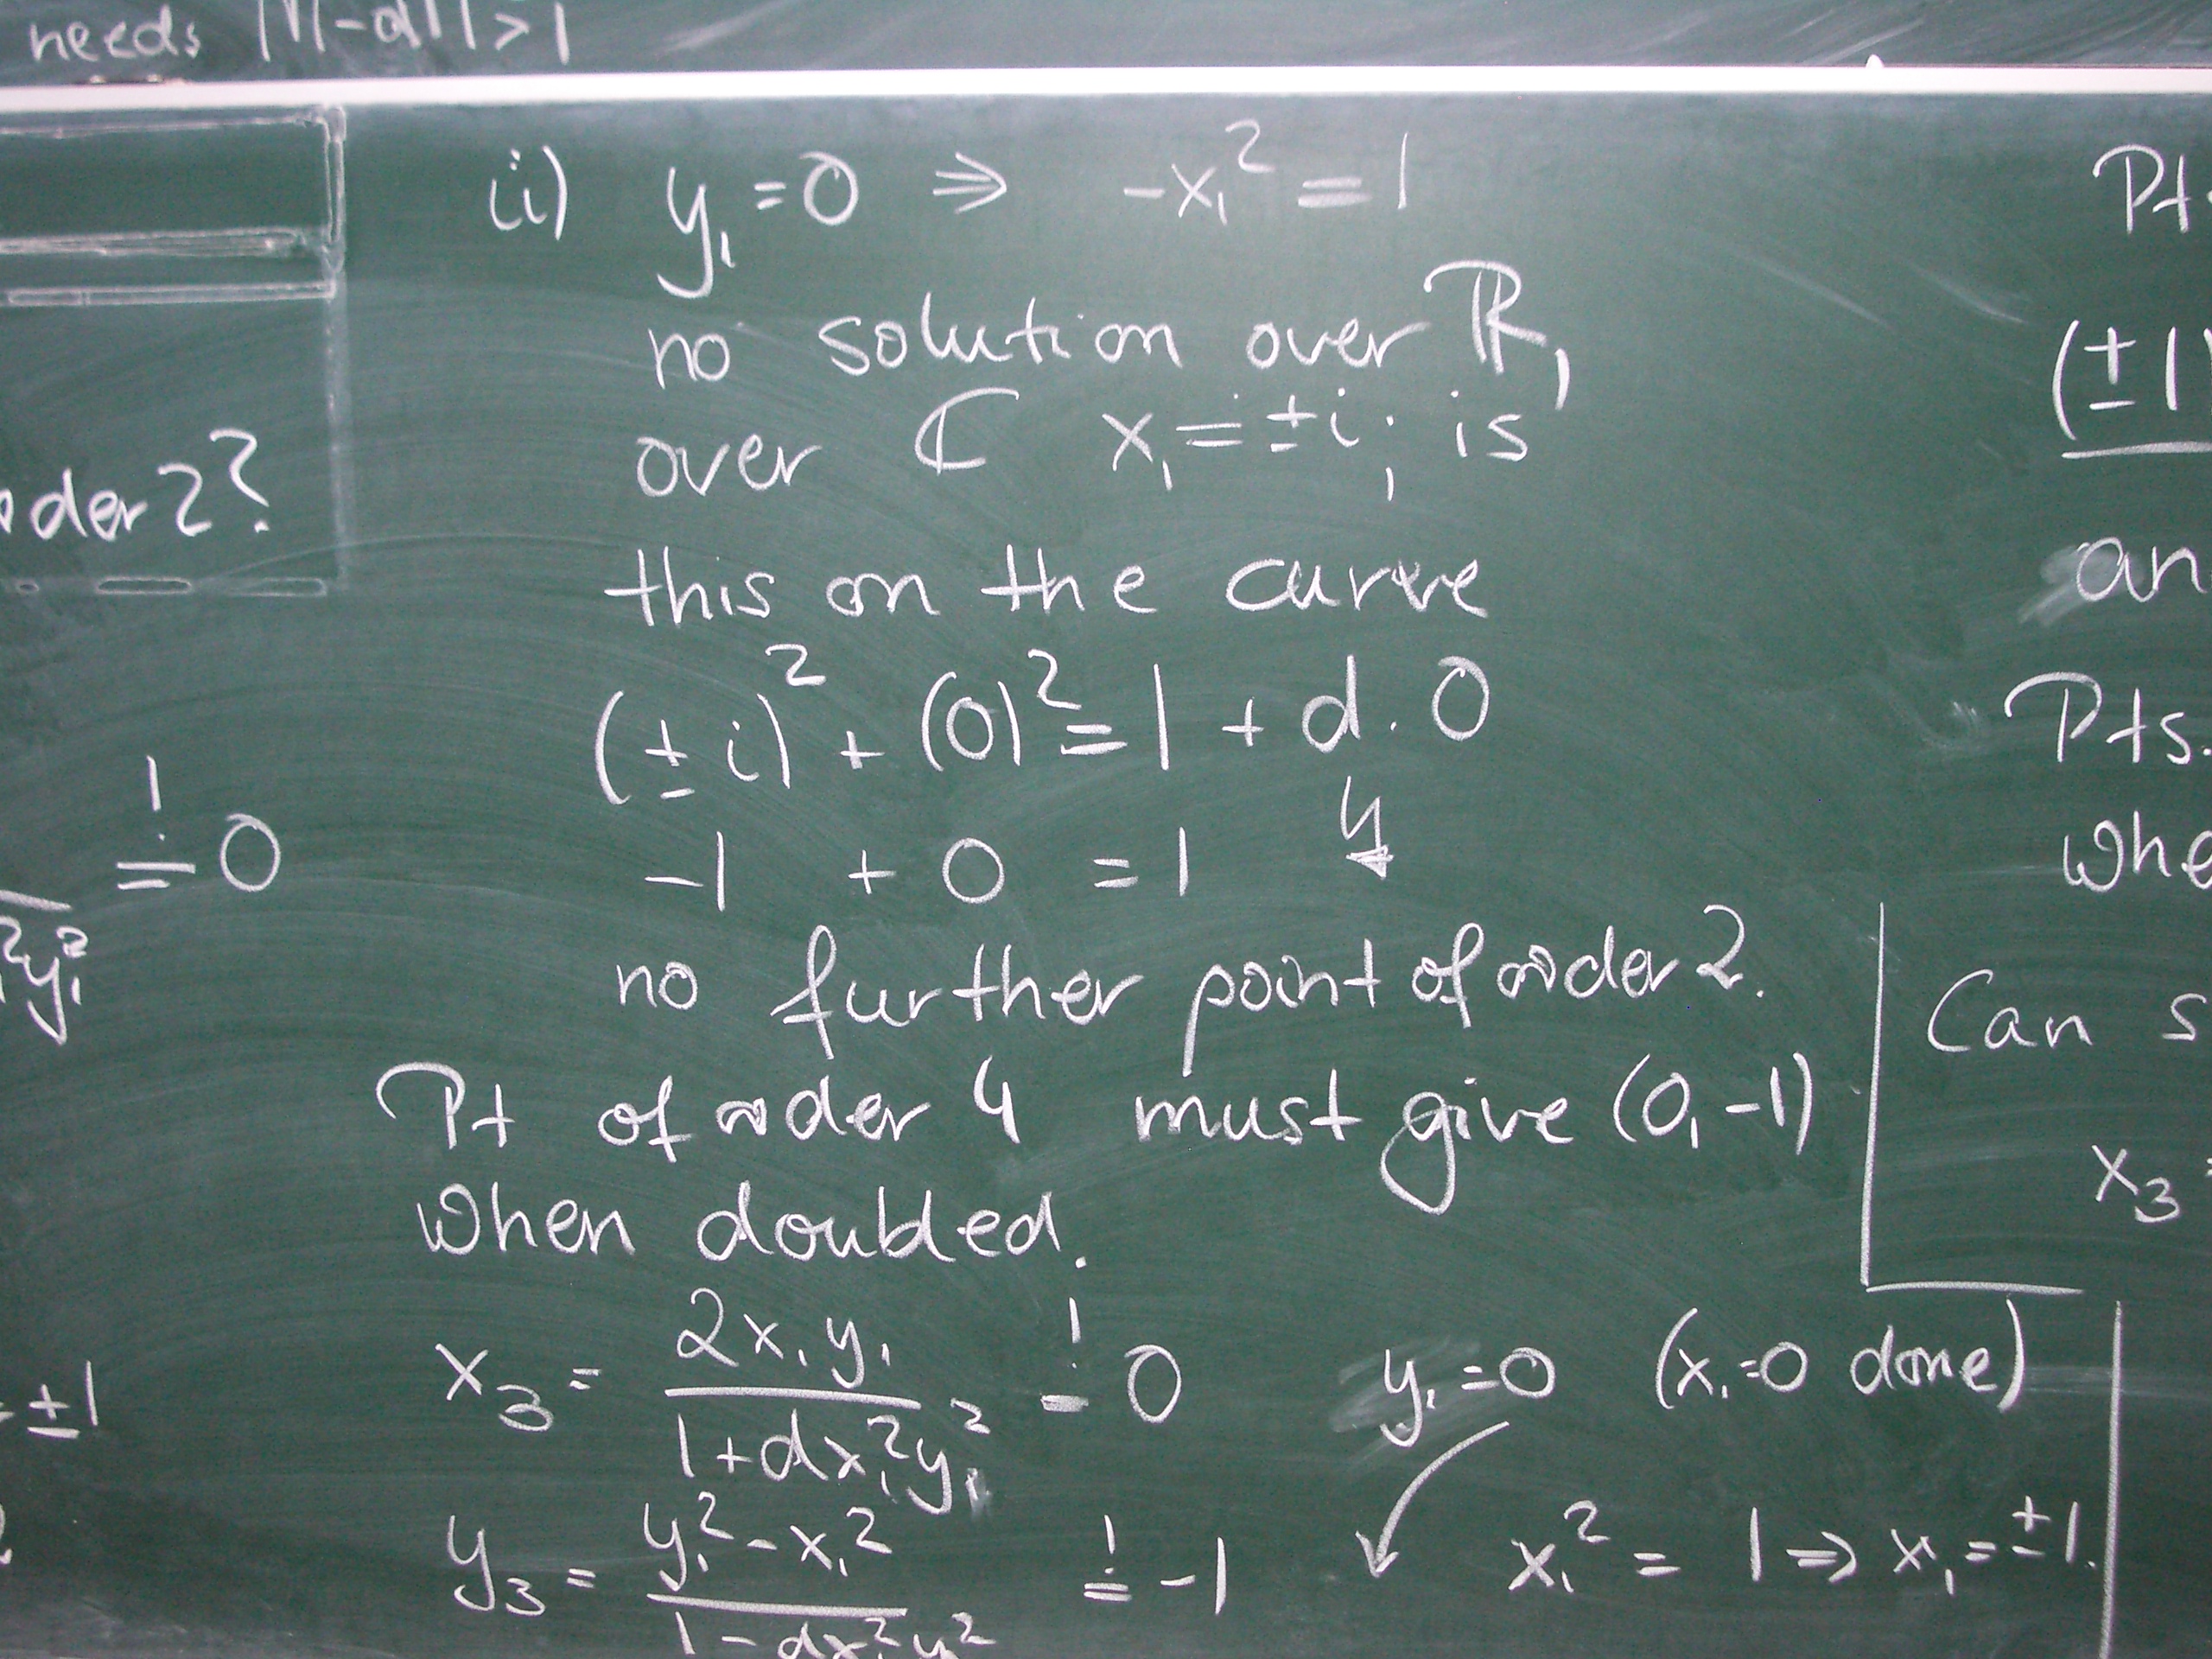 needs
ii) y₁ = 0 ⇒ -x₁² = 1
no solution over ℝ,
over ℂ x₁ = ±i; is
this on the curve
(±i)² + (0)² = 1 + d·0
-1 + 0 = 1 ↯
no further point of order 2.
Pt of order 4 must give (0,-1)
when doubled.
x₃ = 2x₁y₁ / 1+dx₁²y₁² != 0 y₁=0 (x₁=0 done)
y₃ = y₁²-x₁² / 1-dx₁²y₁² != -1 x₁² = 1 ⇒ x₁ = ±1.
order 2?
!= 0
²y₁²
= ±1
Pt
(±1
an
Pts.
whe
Can s
x₃ =